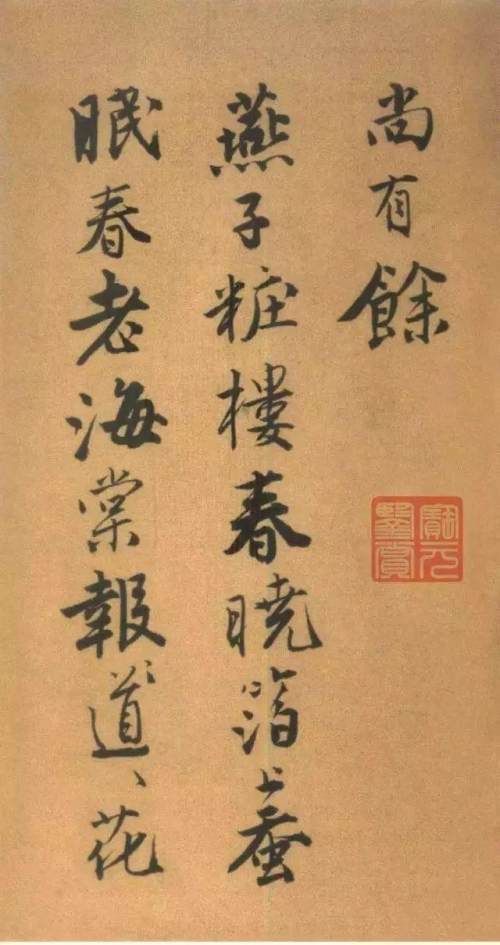 尚有餘
燕子粧樓春曉箔上蚕
眠春老海棠報道、花
鑒賞